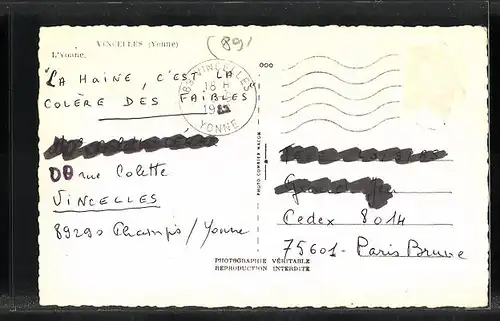 VINCELLES (Yonne)
L'Yonne.
(89)
"LA HAINE, C'EST LA
COLÈRE DES FAIBLES
89 VINCELLES
18 H
YONNE
rue Colette
VINCELLES
89290 Champs / Yonne
Cedex 8014
75601 - Paris Brune
PHOTO COMBIER MACON
PHOTOGRAPHIE VÉRITABLE
REPRODUCTION INTERDITE